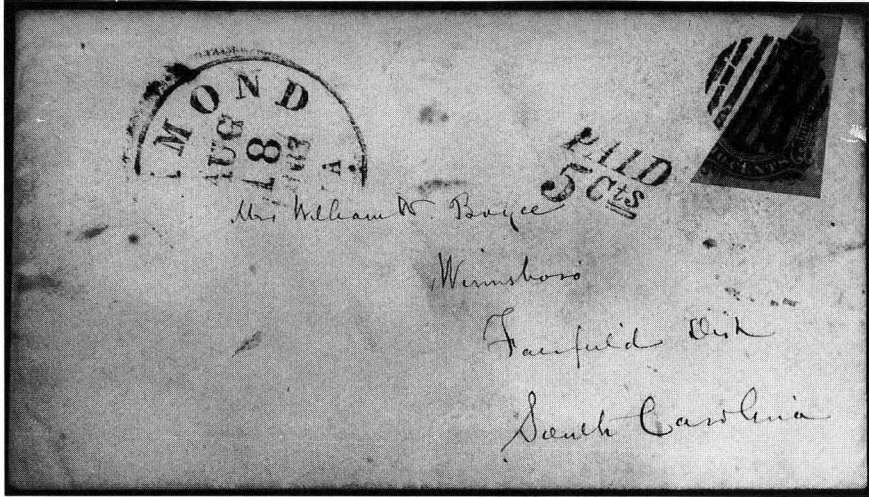 MOND
AUG
18
1863
A.
PAID
5 Cts
CENTS
Mrs William W. Boyce
Winnsboro
Fairfield Dist
South Carolina